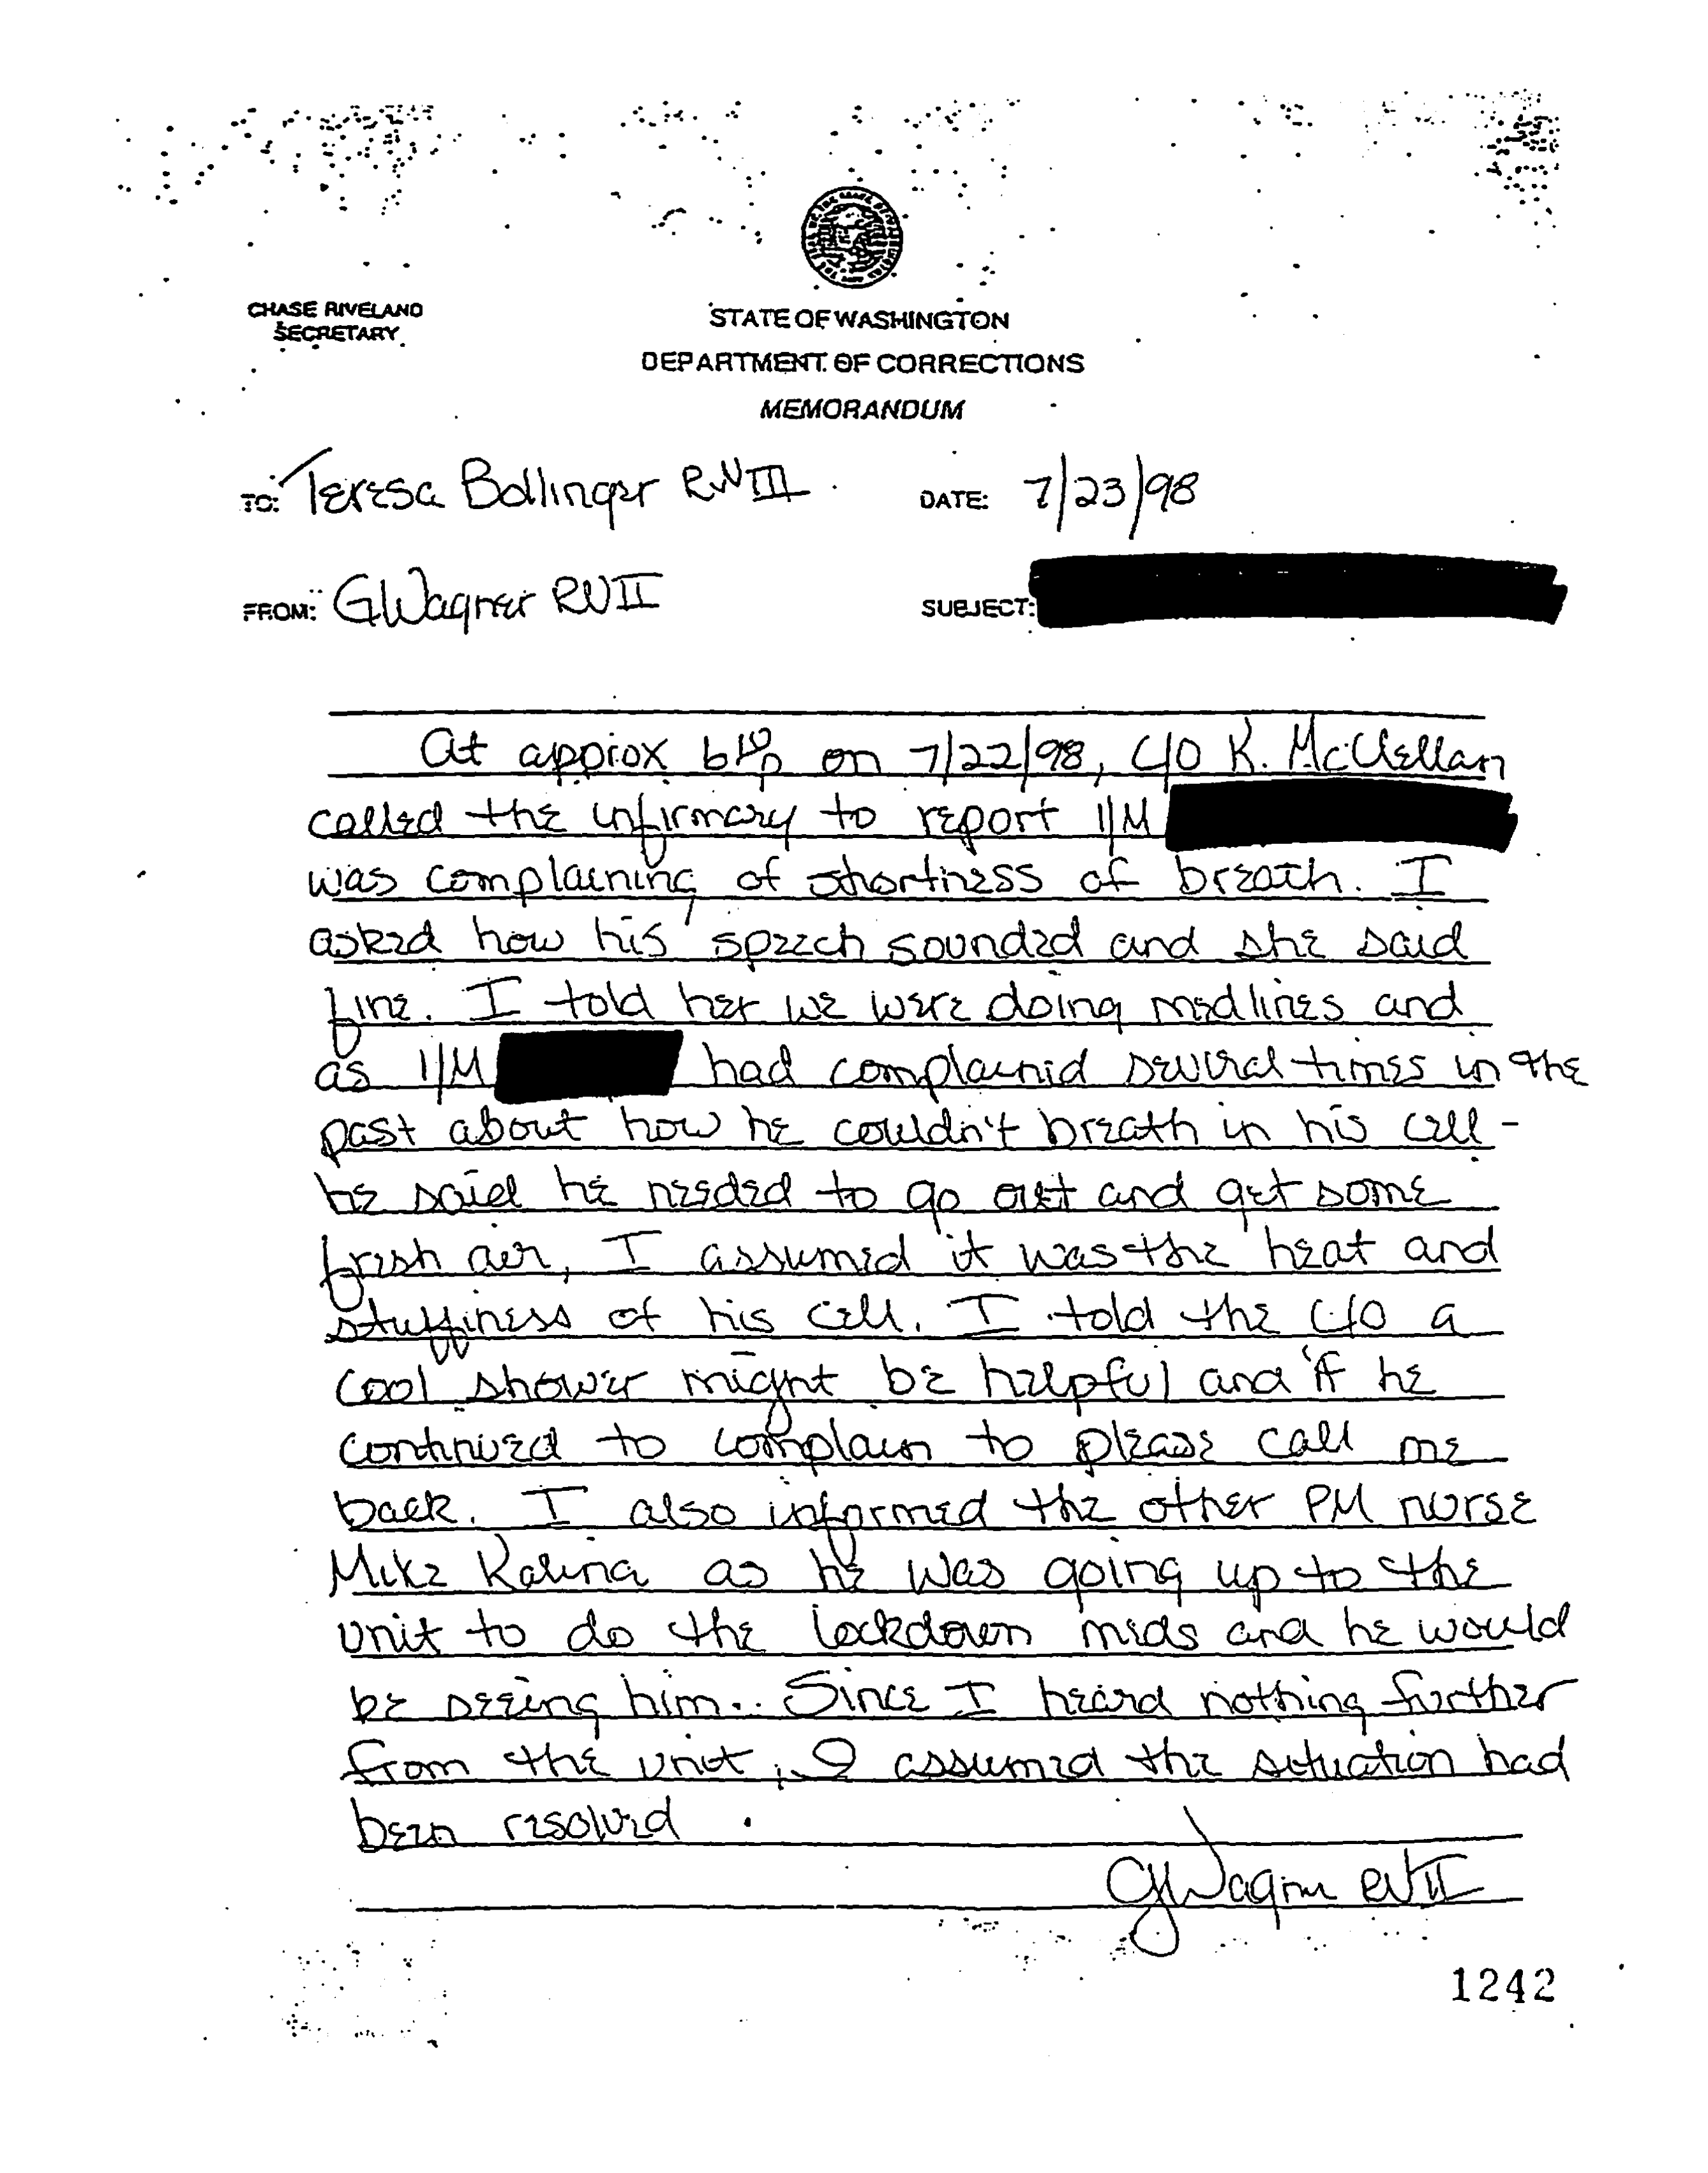 CHASE RIVELAND
SECRETARY
STATE OF WASHINGTON
DEPARTMENT OF CORRECTIONS
MEMORANDUM
TO: Teresa Bollinger RN III
DATE: 7/23/98
FROM: GWagner RN II
SUBJECT:
At approx 6 10 p on 7/22/98, C/O K. McClellan
called the infirmary to report I/M
was complaining of shortness of breath. I
asked how his speech sounded and she said
fine. I told her we were doing medlines and
as I/M had complained several times in the
past about how he couldn't breath in his cell -
he said he needed to go out and get some
fresh air, I assumed it was the heat and
stuffiness of his cell. I told the C/O a
cool shower might be helpful and if he
continued to complain to please call me
back. I also informed the other PM nurse
Mike Kalina as he was going up to the
unit to do the lockdown meds and he would
be seeing him.. Since I heard nothing further
from the unit, I assumed the situation had
been resolved.
GWagner RN II
1242